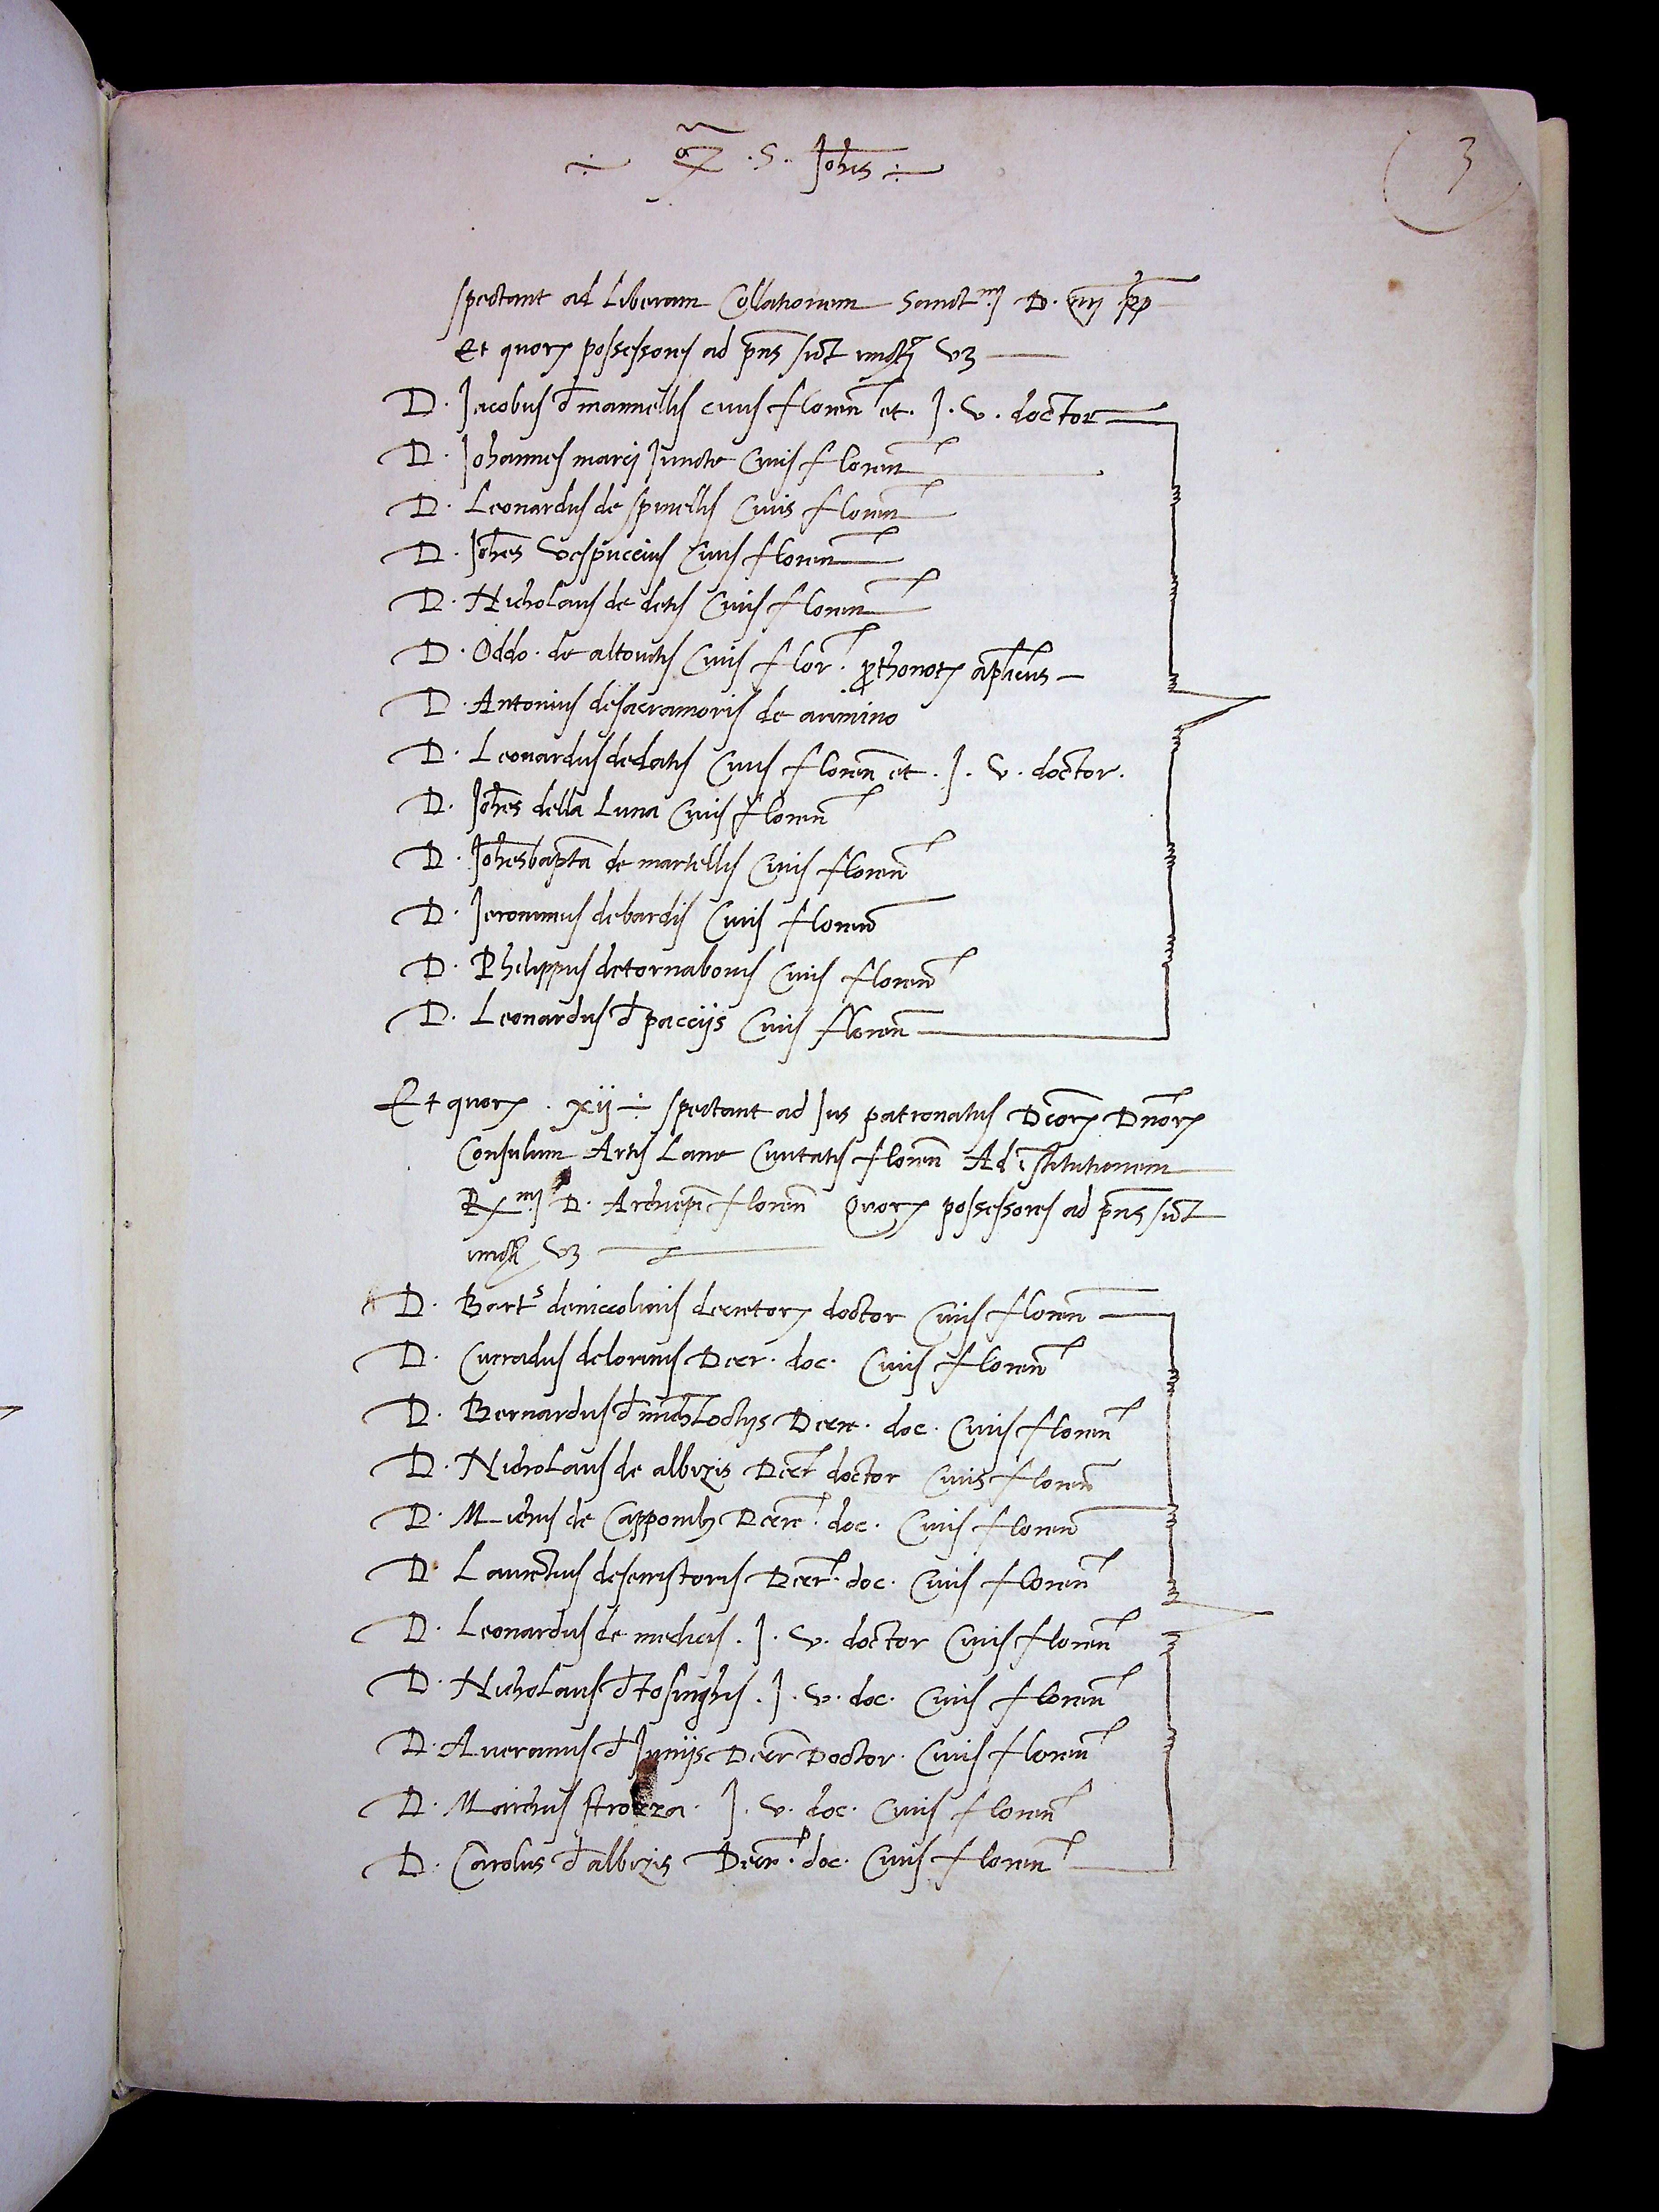 .S. Johes
3
spectant ad Liberam Collationem Sanct.mj D. nrj pp
Et quorz possessores ad pns sūt vz
D. Jacobus d mannellis civis floren et. J. V. doctor
D. Johannes marcj Juncte Civis floren
D. Leonardus de spinellis Civis floren
D. Johes Vespuccius Civis floren
D. Nicholaus de detis Civis floren
D. Oddo. de altovitis Civis flor. prothonotz aplicus
D. Antonius desacramoris de arimino
D. Leonardus dedatis Civis floren et. J. V. doctor.
D. Johes della Luna Civis floren
D. Johesbapta de martellis Civis floren
D. Jeronimus debardis Civis floren
D. Philippus detornabonis Civis floren
D. Leonardus d pacciis Civis floren
Et quorz . xij spectant ad Jus patronatus Dcorz Dnorz
Consulum Artis Lane Civitatis floren Ad īstitutionem
R.mj D. Archiepi floren Quorz possessores ad pns sūt
vz
D. Bart.s deniccolinis decretorz doctor Civis floren
D. Curradus delorinis Decr. doc. Civis floren
D. Bernardus d Decre. doc. Civis floren
D. Nicholaus de albizis Decr doctor Civis floren
D. Michus de Capponibz Decre. doc. Civis floren
D. Laurētius deserristoris Decr. doc. Civis floren
D. Leonardus de medicis. J. V. doctor Civis floren
D. Nicholaus d tosinghis. J. V. doc. Civis floren
D. Averanus d Decr Doctor. Civis floren
D. Marchus strozza. J. V. doc. Civis floren
D. Carolus d albizis Decr. doc. Civis floren